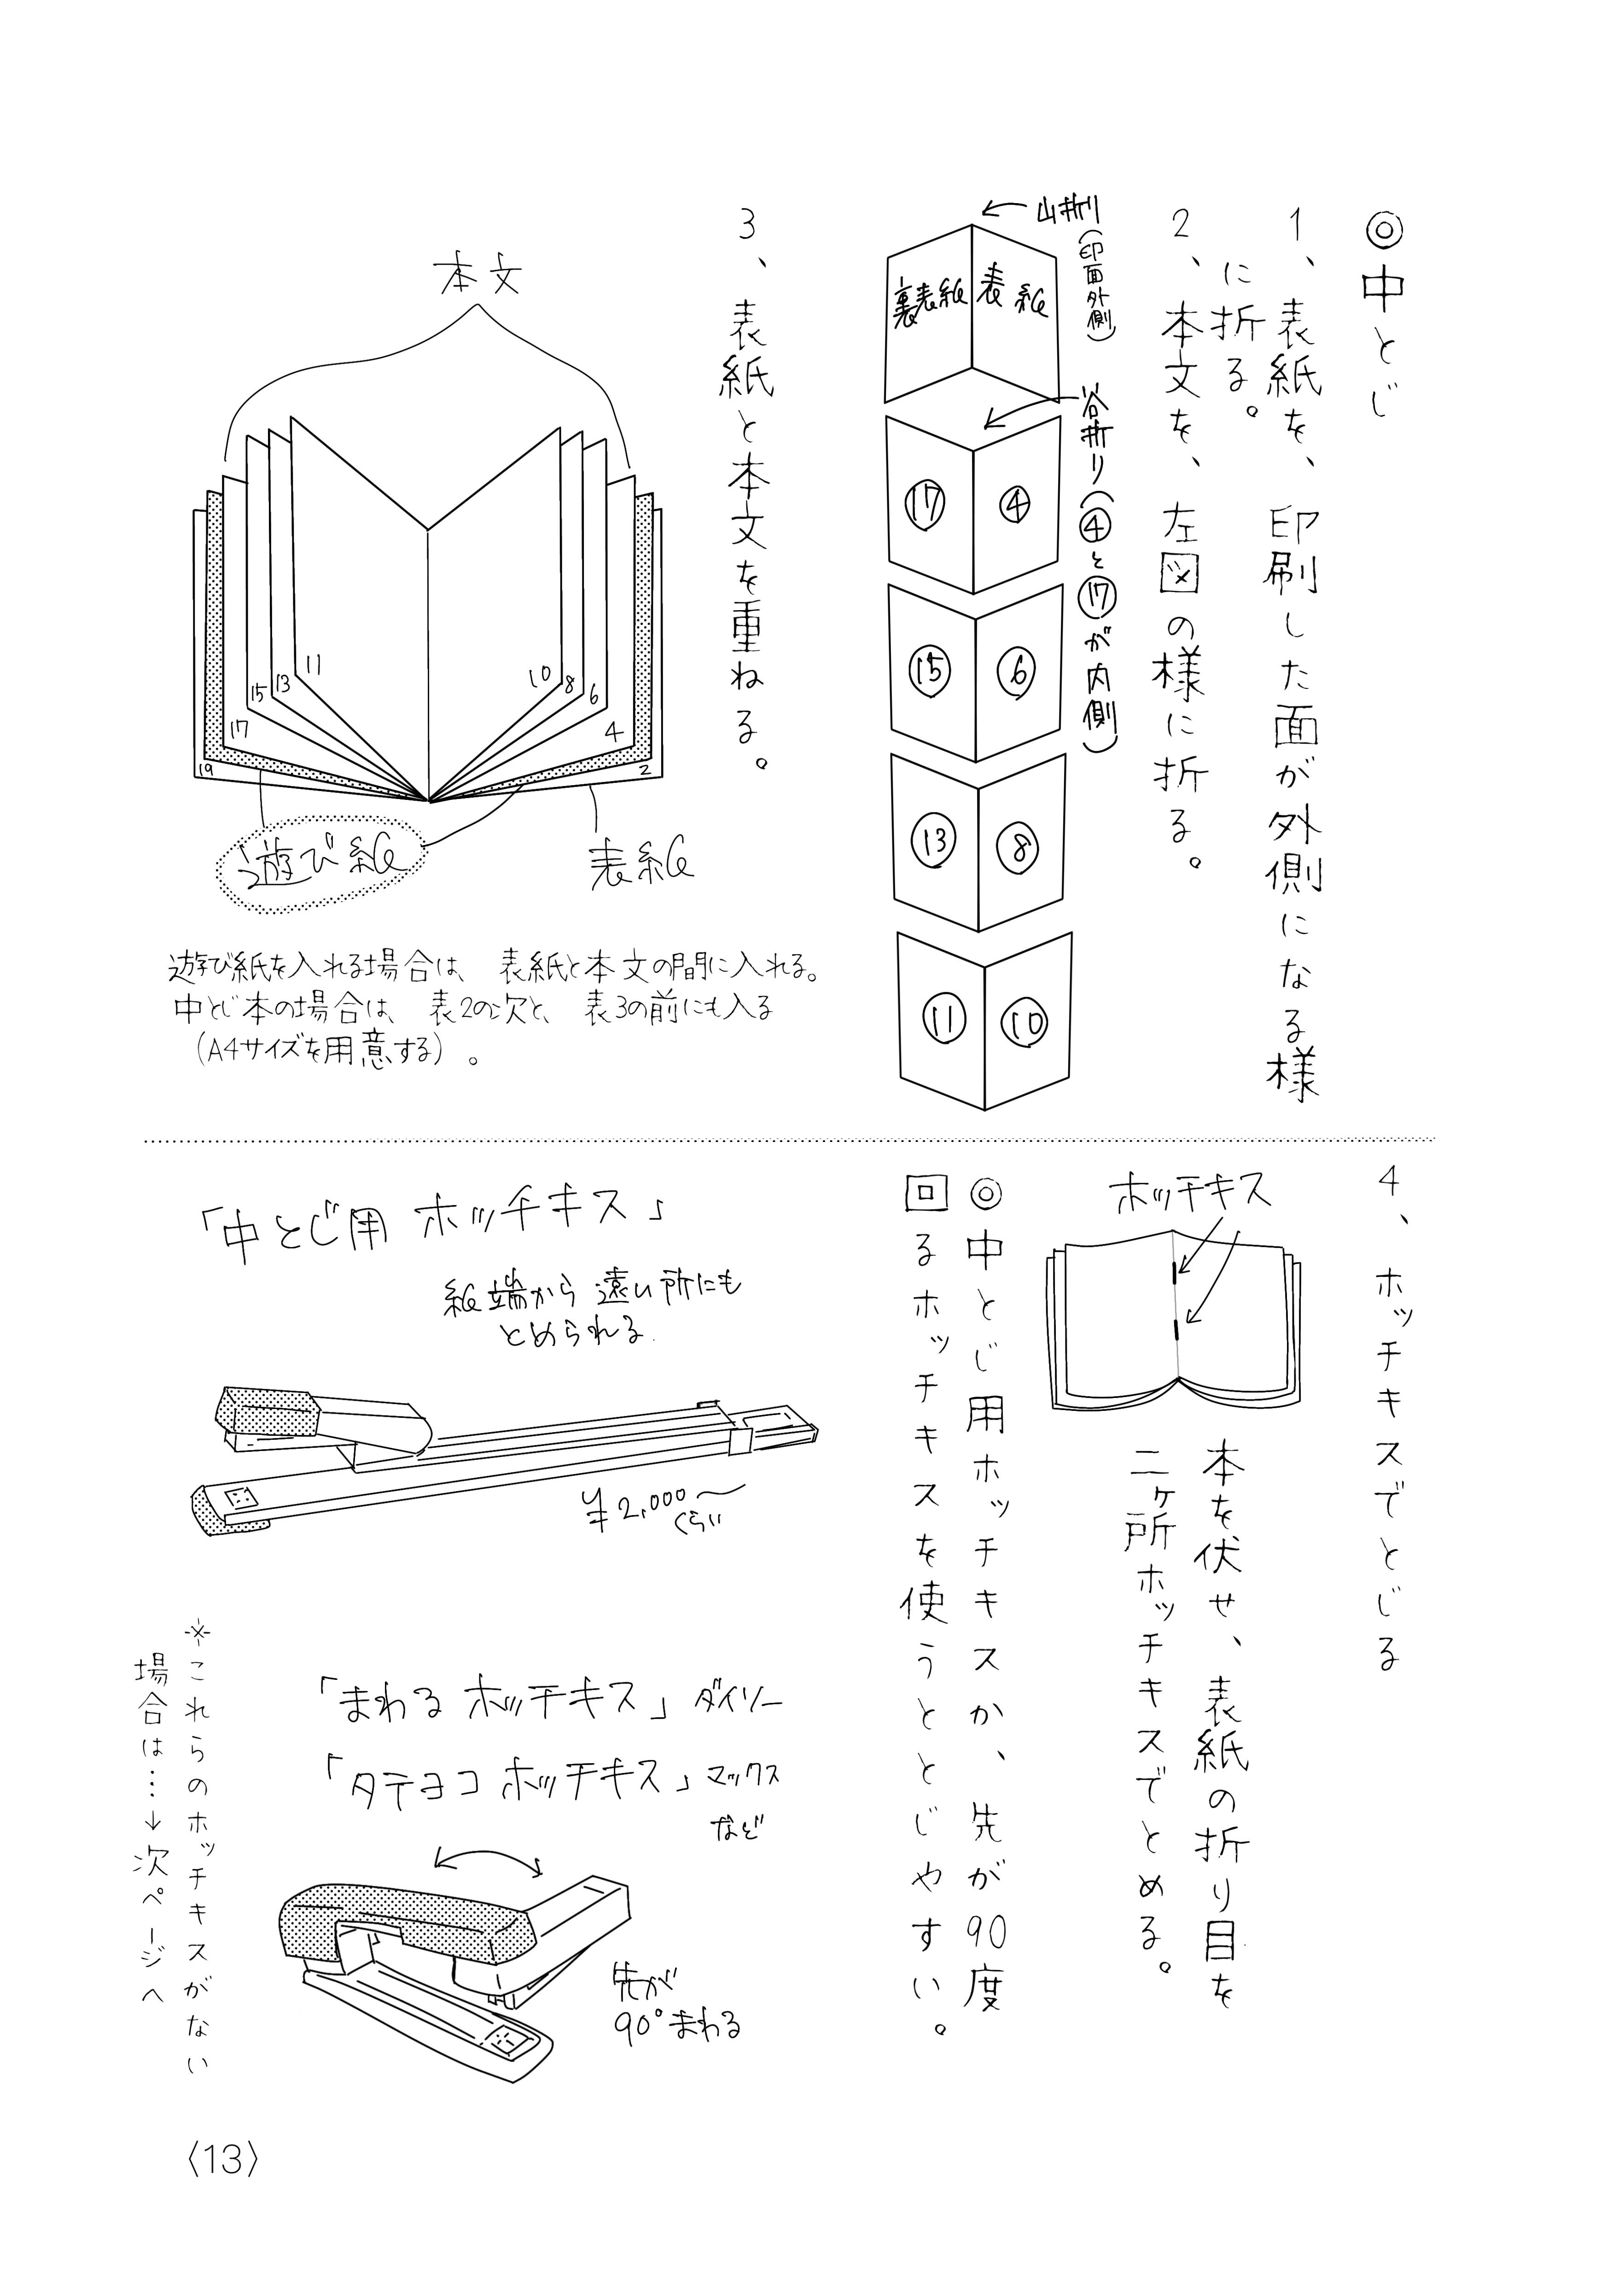 ◎中とじ
1、表紙を、印刷した面が外側になる様
に折る。
2、本文を、左図の様に折る。
山折り
(印面外側)
裏表紙
表紙
谷折り(④と⑰が内側)
⑰
④
⑮
⑥
⑬
⑧
⑪
⑩
3、表紙と本文を重ねる。
本文
11
10
13
8
15
6
17
4
19
2
遊び紙
表紙
遊び紙を入れる場合は、表紙と本文の間に入れる。
中とじ本の場合は、表2の次と、表3の前にも入る
(A4サイズを用意する)。
4、ホッチキスでとじる
ホッチキス
本を伏せ、表紙の折り目を
二ヶ所ホッチキスでとめる。
◎中とじ用ホッチキスか、先が90度
回るホッチキスを使うととじやすい。
「中とじ用 ホッチキス」
紙端から遠い所にも
とめられる.
¥2,000〜
くらい
「まわる ホッチキス」ダイソー
「タテヨコ ホッチキス」マックス
など
先が
90°まわる
※これらのホッチキスがない
場合は…↓次ページへ
〈13〉